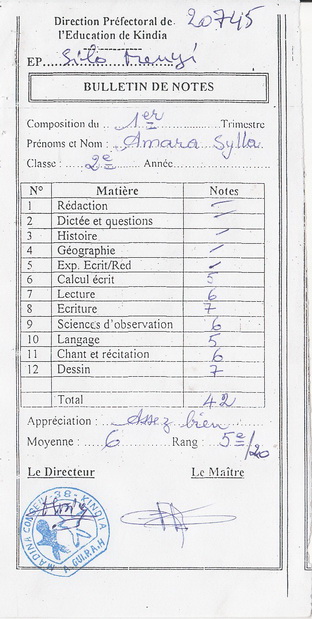 Direction Préfectoral de
l'Education de Kindia
20745
EP
BULLETIN DE NOTES
Composition du 1er Trimestre
Prénoms et Nom : Amara Sylla
Classe : 2e Année
N° Matière Notes
1 Rédaction —
2 Dictée et questions —
3 Histoire —
4 Géographie —
5 Exp. Ecrit/Red —
6 Calcul écrit 5
7 Lecture 6
8 Ecriture 7
9 Sciences d'observation 6
10 Langage 5
11 Chant et récitation 6
12 Dessin 7
Total 42
Appréciation : Assez bien
Moyenne : 6 Rang : 5e/20
Le Directeur Le Maître